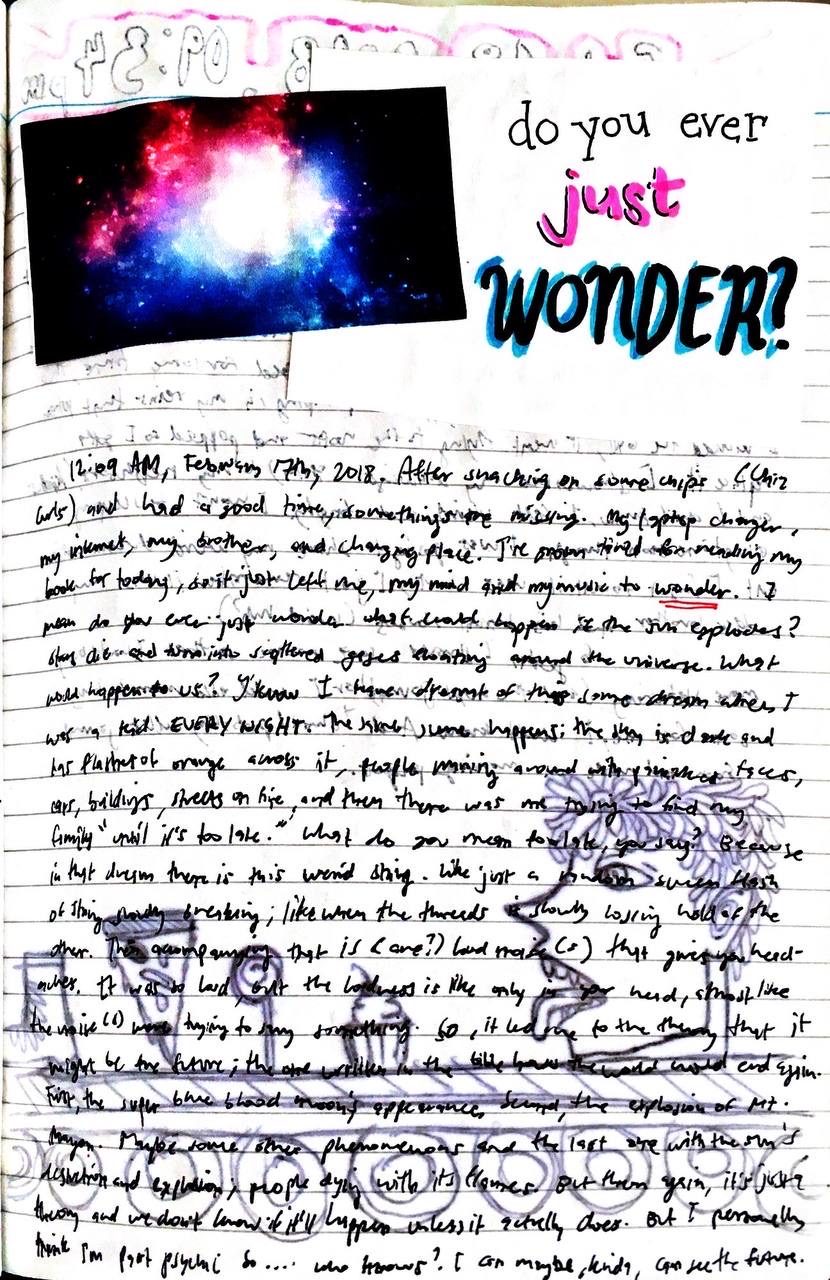 do you ever
just
WONDER?
12:09 AM, February 17th, 2018. After snacking on some chips (Chiz
Curls) and had a good time, something's are missing. My laptop charger,
my internet, my brother, and charging place. I've grown tired for reading my
book for today, so it just left me, my mind and my music to wonder. I
mean do you ever just wonder what would happen if the sun explodes?
stars die and turn into scattered gases floating around the universe. What
would happen to us? Y'know I have dreamt of this same dream when I
was a kid EVERY NIGHT. The same scene happens: the sky is dark and
has flashes of orange across it, people running around with faces,
cars, buildings, streets on fire, and then there was me trying to find my
family "until it's too late." What do you mean too late, you say? Because
in that dream there is this weird string. Like just a random screen flash
of string slowly breaking; like when the threads is slowly losing hold of the
other. Then accompanying that is (are?) loud noise(s) that gives you head-
aches. It was so loud, but the loudness is like only in your head, almost like
the noise(s) were trying to say something. So, it led me to the theory that it
might be the future; the one written in the bible how the world would end again.
First, the super blue blood moon's appearance, Second, the explosion of Mt.
Mayon. Maybe some other phenomenons and the last one with the sun's
destruction and explosion; people dying with its flames. But then again, it's just a
theory and we don't know if it'll happen unless it actually does. But I personally
think I'm part psychic so.... who knows? I can maybe, kinda, can see the future.